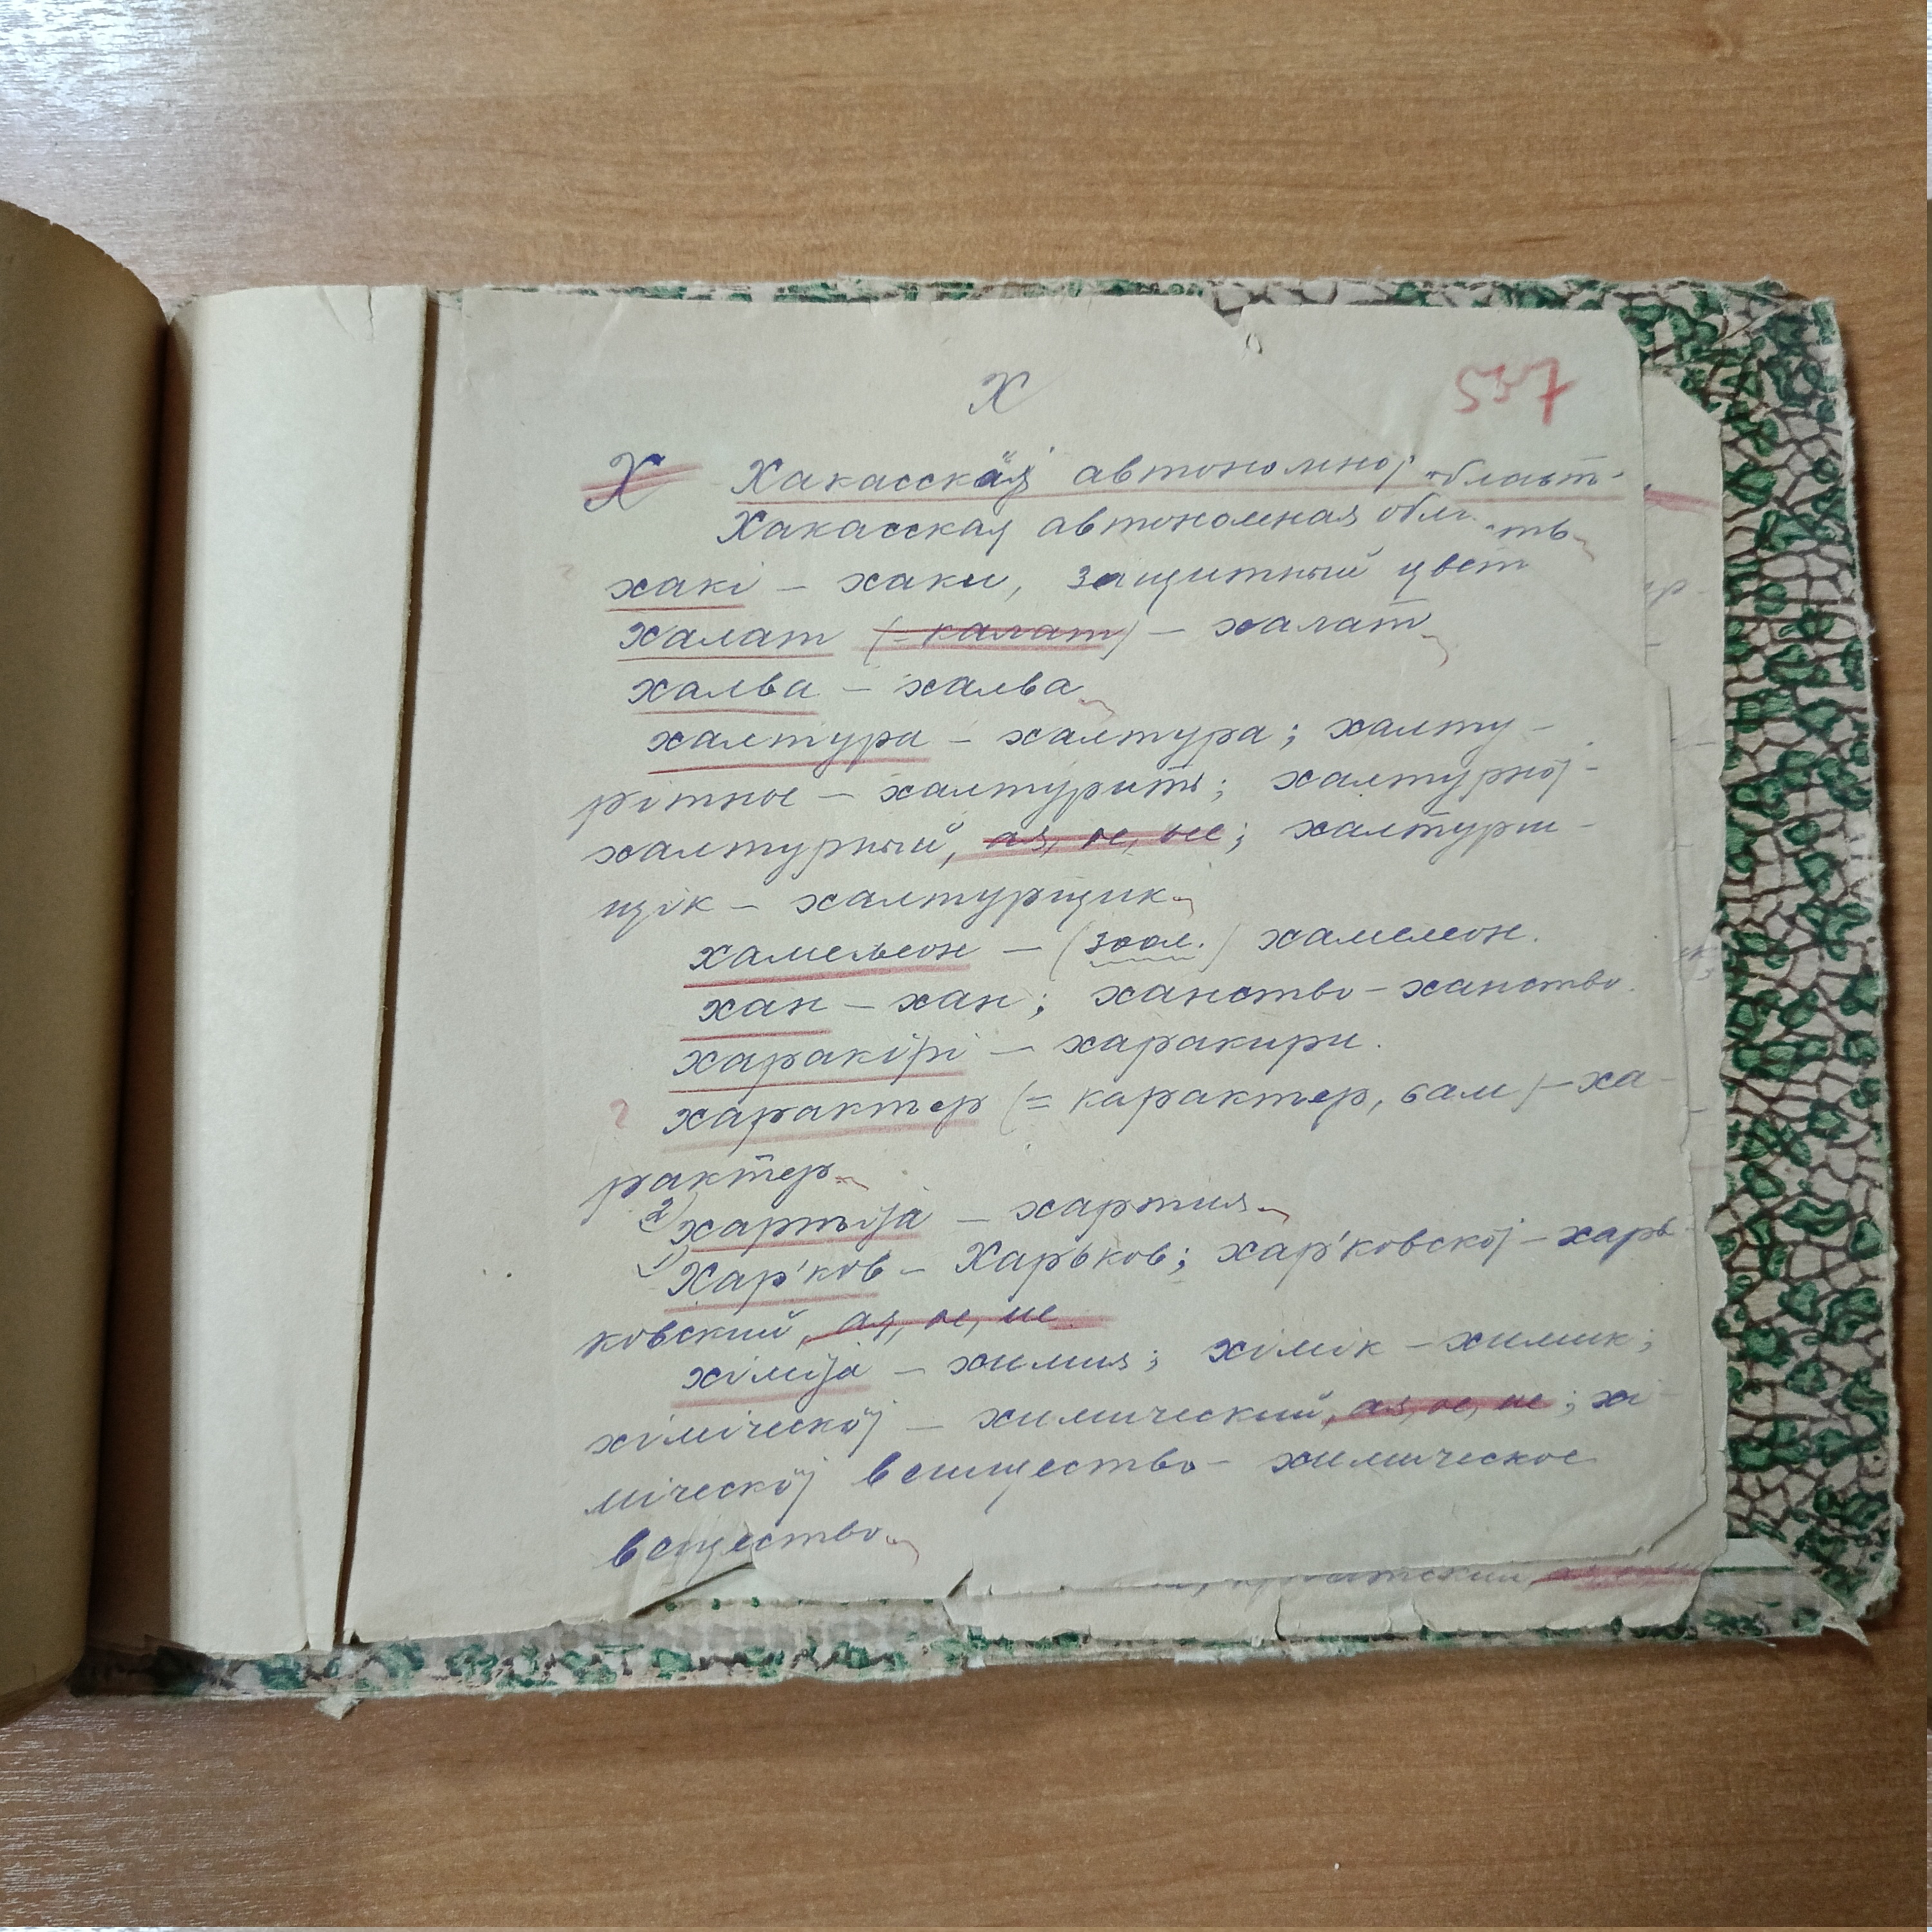 Х
557
Х Хакасскӓј автономној област
Хакасская автономная область
хакі – хаки, защитный цвет
халат (= калат) – халат
халва – халва
халтура – халтура; халту-
рітнœ – халтурить; халтурној –
халтурный, ая, ое, ые; халтурш-
щік – халтурщик
хамельеон – (зоол.) хамелеон.
хан – хан; ханство – ханство.
харакірі – харакири.
? характер (= карактер, сам) – ха-
рактер
2) хартьіја – хартия
1) Хар'ков – Харьков; хар'ковској – харь-
ковский, ая, ое, ие.
хіміја – химия; хімік – химик;
хіміческӧј – химический, ая, ое, ие; хі-
міческӧј вешщество – химическое
вещество